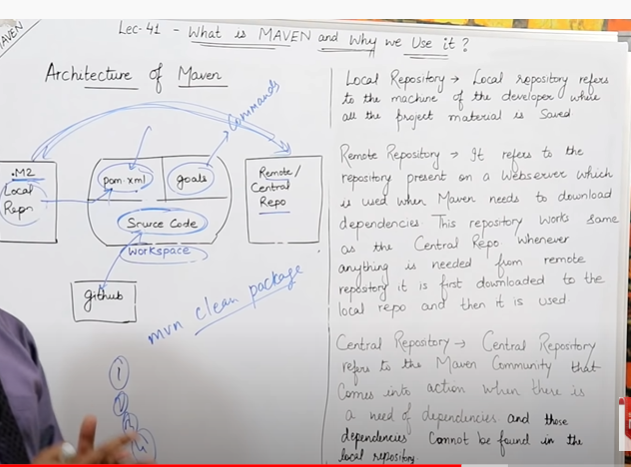 MAVEN
Lec-41 - What is MAVEN and Why we Use it?
Architecture of Maven
Commands
.M2
Local
Repo
pom.xml
goals
Source Code
Workspace
Remote/
Central
Repo
github
mvn clean package
Local Repository → Local repository refers
to the machine of the developer where
all the project material is saved
Remote Repository → It refers to the
repository present on a Webserver which
is used when Maven needs to download
dependencies. This repository works same
as the Central Repo whenever
anything is needed from remote
repository it is first downloaded to the
local repo and then it is used.
Central Repository → Central Repository
refers to the Maven Community that
Comes into action when there is
a need of dependencies and those
dependencies Cannot be found in the
local repository